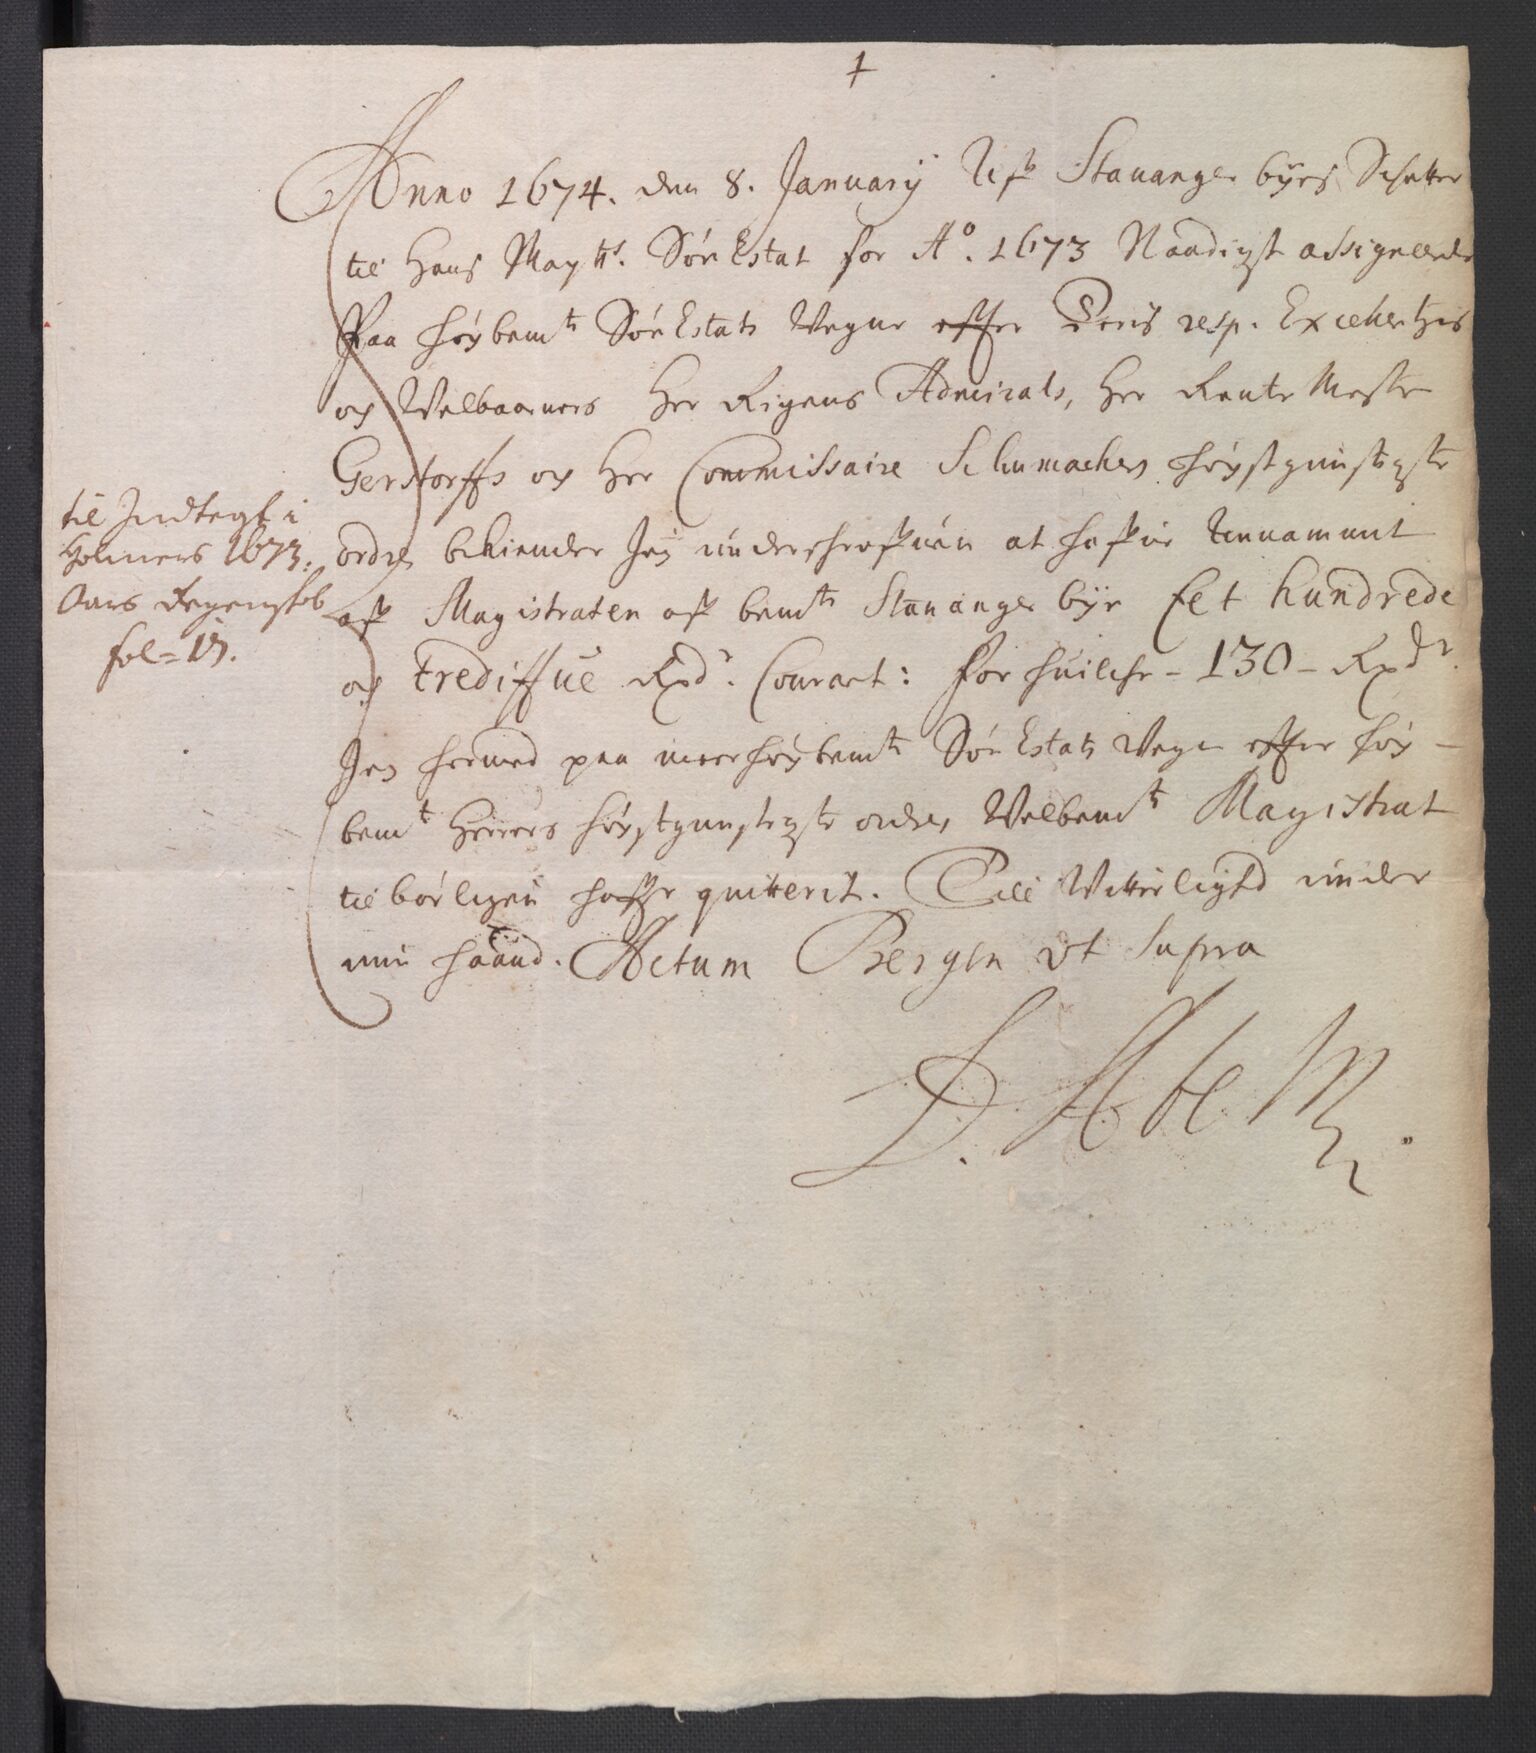 1
Anno 1674. den 8. January Aff Stauanger byes Schatter
til Hans Maytts. Søe Estat for Ao. 1673 Naadigst assignerede
Paa høybemte Søe Estats Wegne effter Deris resp. Excellentzis
og Welbaarners Her Rigens Admirals, Her Rente Mester
Gerstorffs og Her Commissaire Schumachers høystgunstigste
ordre bekiender Jeg underschreffuen at haffue annammit
aff Magistraten aff bemte Stauanger bye Eet hundrede
og trediffue Rxdr. Courant: for huilche - 130 - Rxdr.
Jeg hermed paa meerhøybemte Søe Estats Wegne effter høy-
bemt Herrers høystgunstigste ordre, Welbemte Magistrat
tilbørligen haffr quitterit. Till Witterlighd under
min haand. Actum Bergen ut Supra
til Indtegt i
Holmens 1673.
Aars Regenschb
fol= 13.